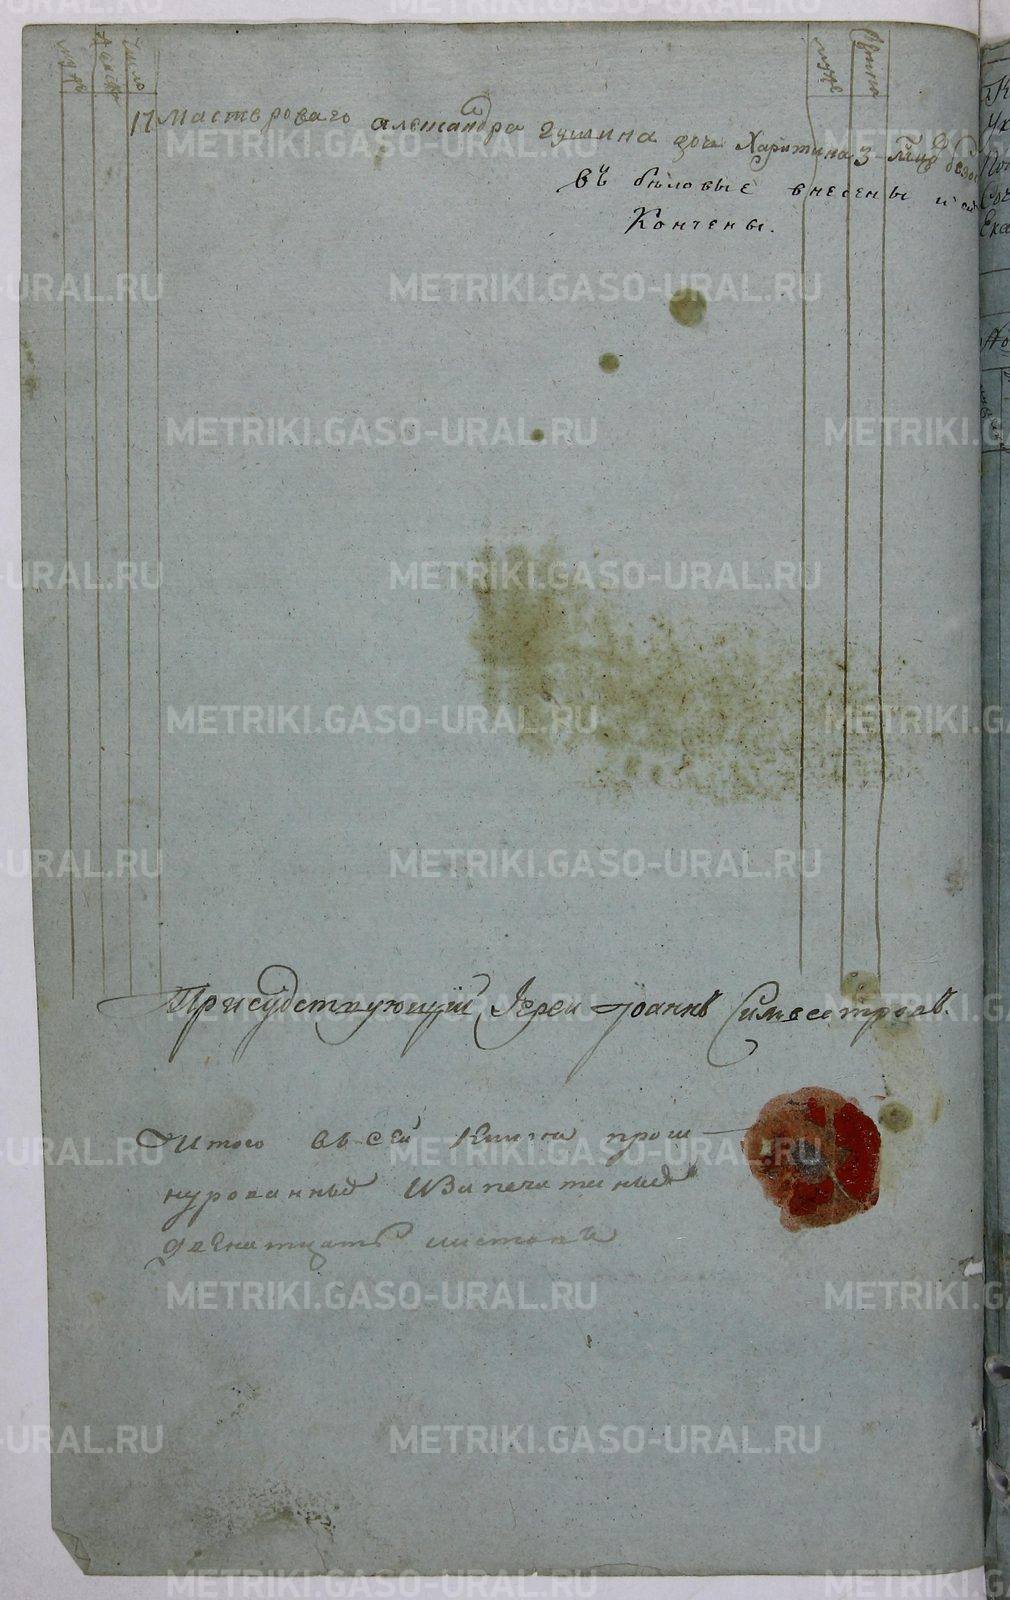 муже
женска
число
муже
женска
17 мастероваго александра гущина дочь Харитина 3
въ беловые внесены и
Кончены.
Присудствующій Іереи Іоаннъ Силвестровъ.
Итого въ сей книги прош
нурованныхъ и Запечатаныхъ
двенатцать листовъ
METRIKI.GASO-URAL.RU